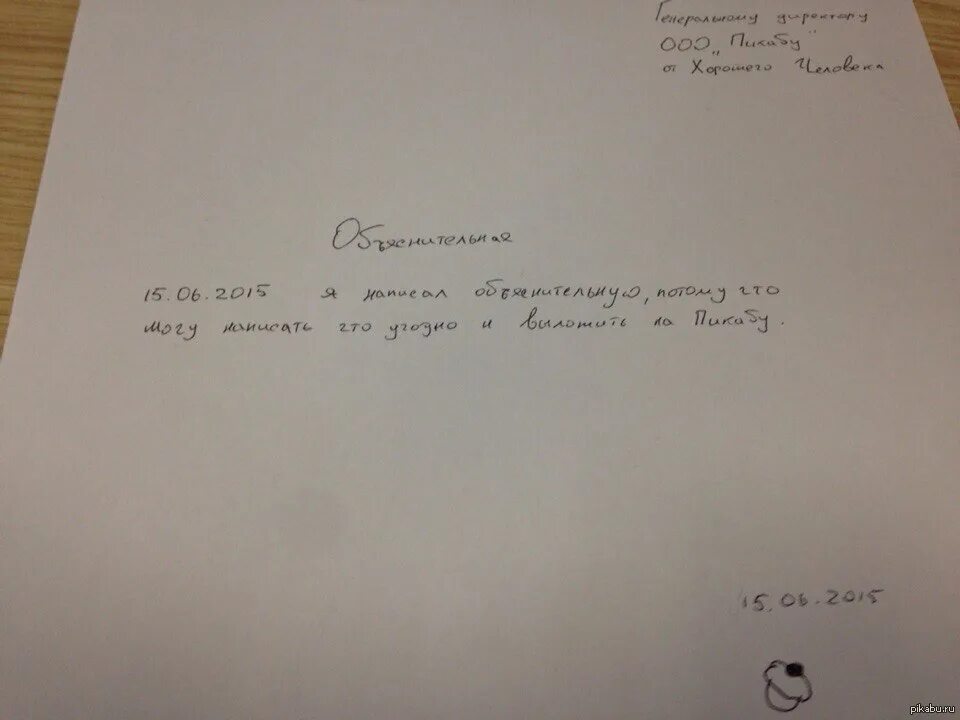 Генеральному директору
ООО „Пикабу"
от Хорошего Человека
Объяснительная
15.06.2015 я написал объяснительную, потому что
могу написать что угодно и выложить на Пикабу.
15.06.2015
pikabu.ru